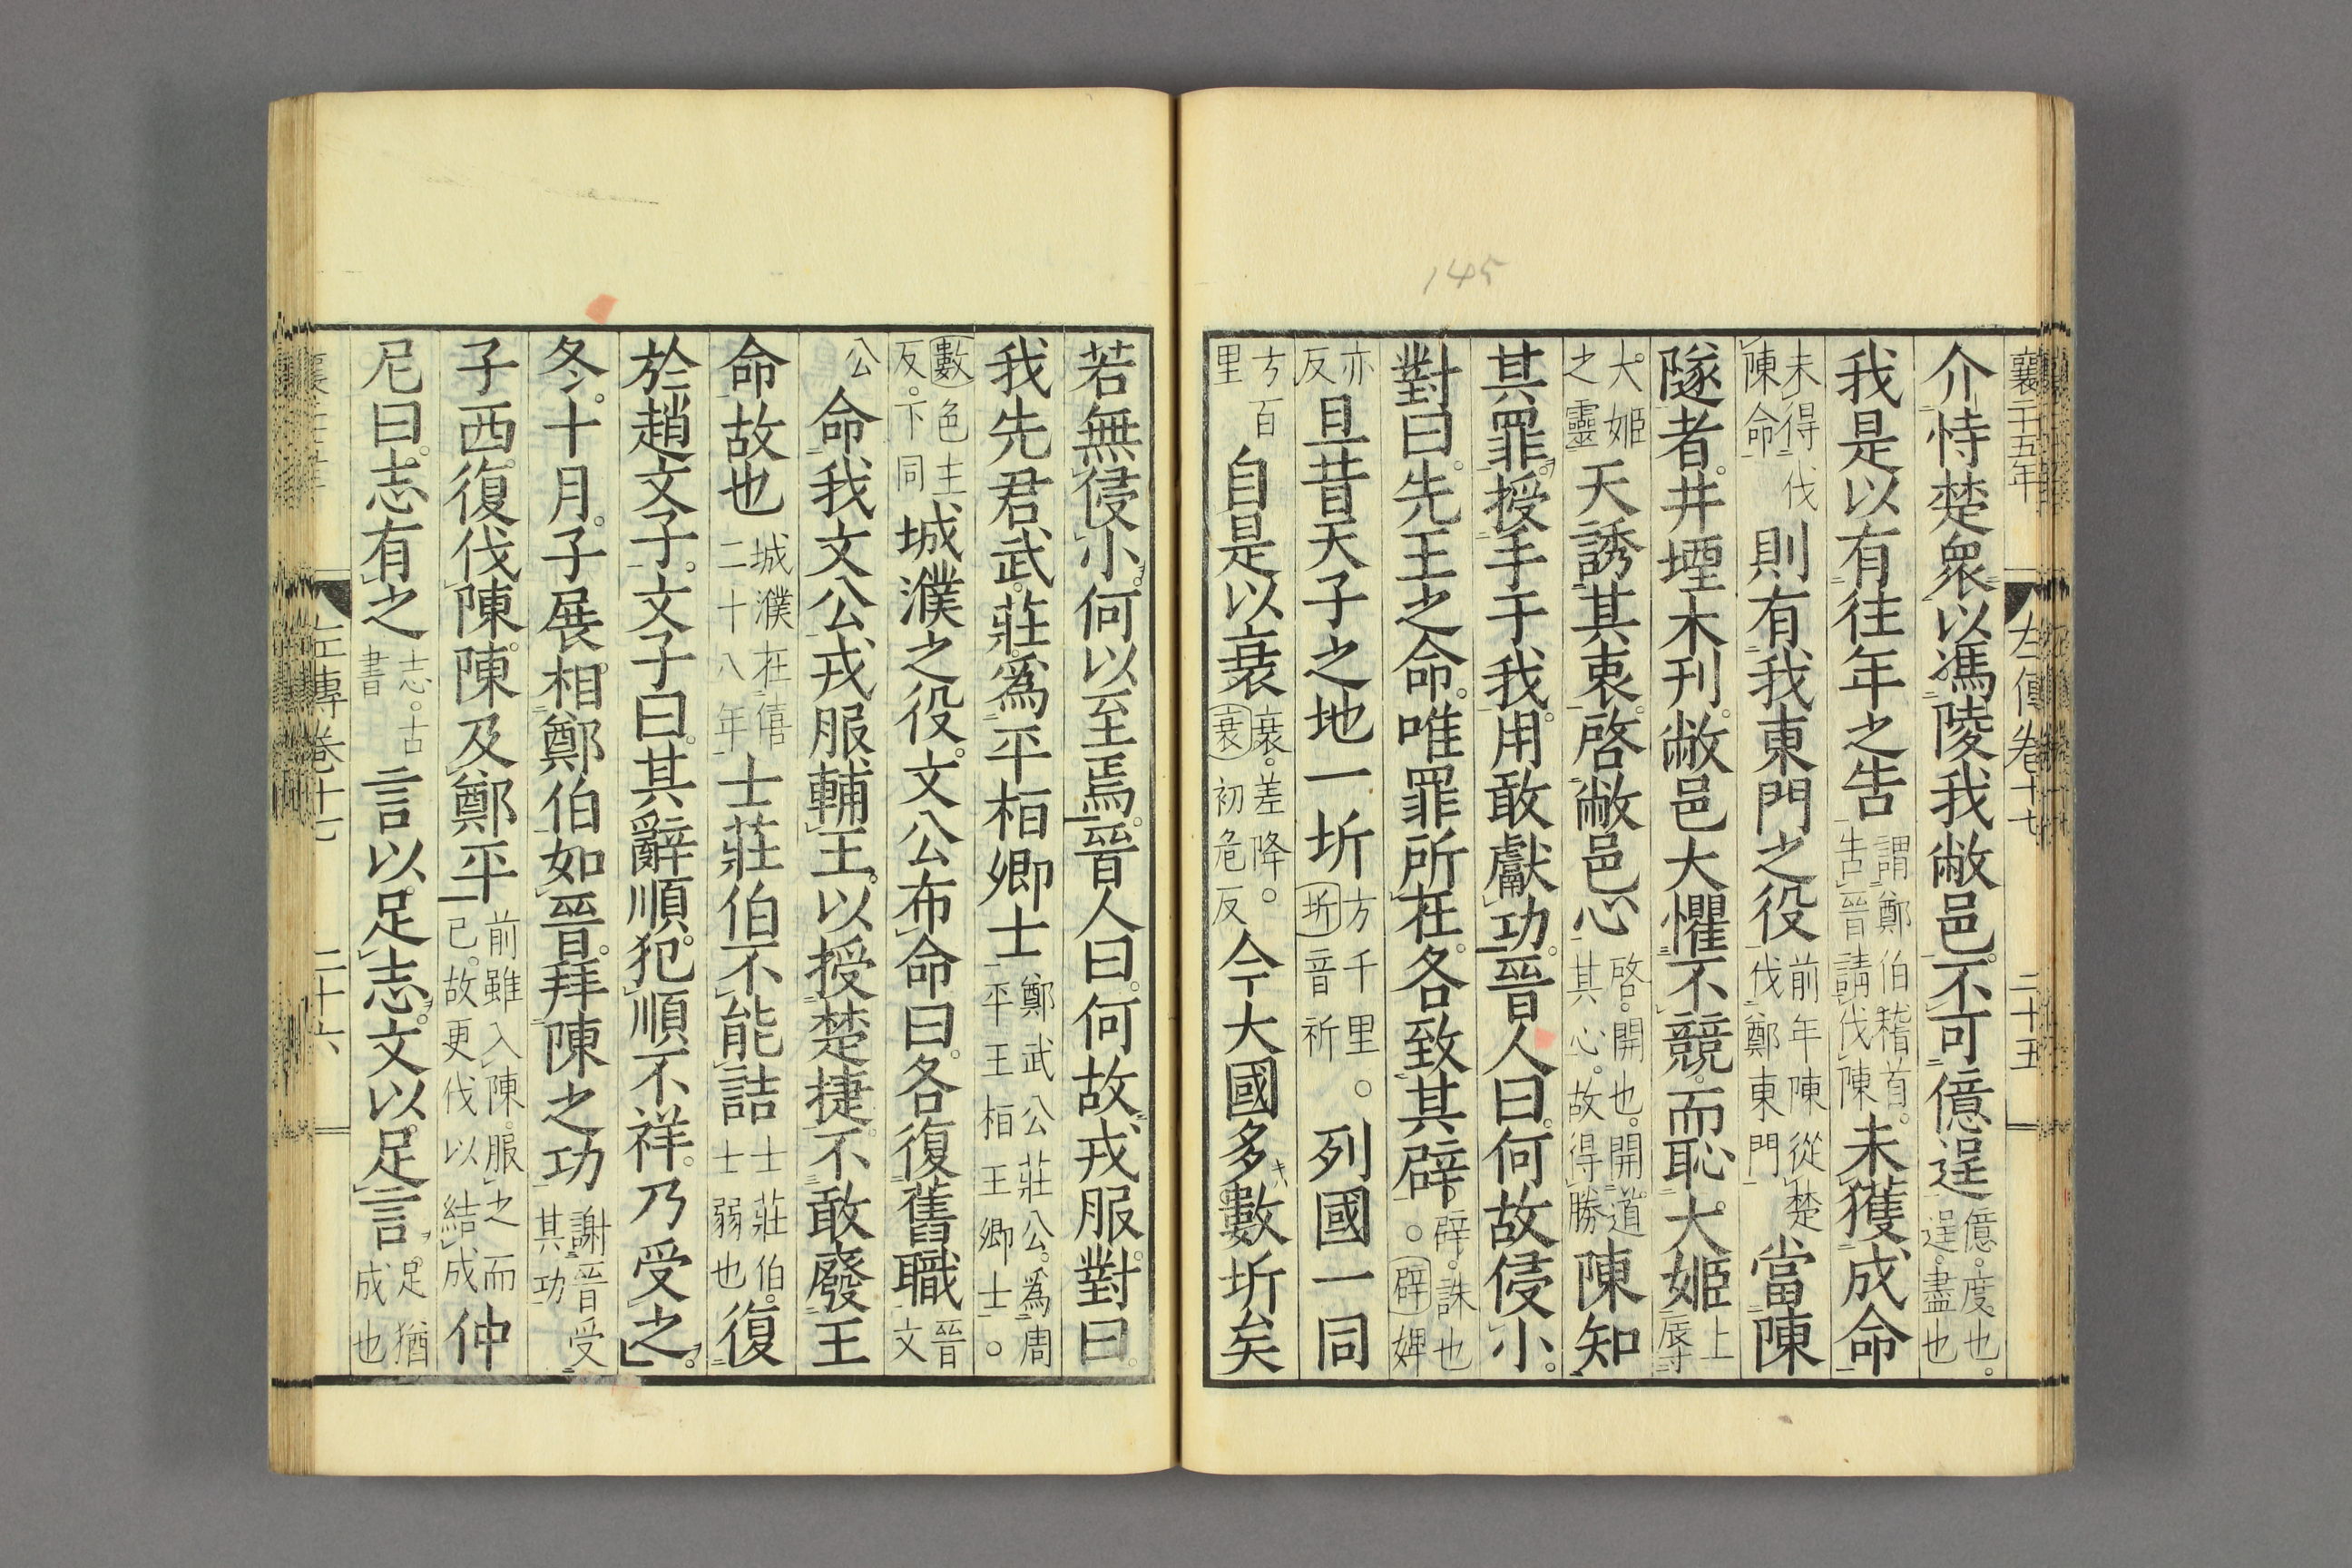 145
襄二十五年 左傳卷十七 二十五
介恃楚衆以馮陵我敝邑不可億逞億度也逞盡也
我是以有往年之告謂鄭伯稽首告晉請伐陳未獲成命
未得伐陳命則有我東門之役前年陳從楚伐鄭東門當陳
隧者井堙木刊敝邑大懼不競而恥大姬上辱
大姬之靈天誘其衷啓敝邑心啓開也開道其心故得勝陳知
其罪授手于我用敢獻功晉人曰何故侵小
對曰先王之命唯罪所在各致其辟辟誅也○辟婢
亦反且昔天子之地一圻方千里○圻音祈列國一同
方百里自是以衰衰差降○衰初危反今大國多數圻矣
若無侵小何以至焉晉人曰何故戎服對曰
我先君武莊爲平桓卿士鄭武公莊公爲周平王桓王卿士○
數色主反下同城濮之役文公布命曰各復舊職晉文
公命我文公戎服輔王以授楚捷不敢廢王
命故也城濮在僖二十八年士莊伯不能詰士莊伯士弱也復
於趙文子文子曰其辭順犯順不祥乃受之
冬十月子展相鄭伯如晉拜陳之功謝晉受其功
子西復伐陳陳及鄭平前雖入陳服之而已故更伐以結成仲
尼曰志有之志古書言以足志文以足言足猶成也
左傳卷十七 二十六